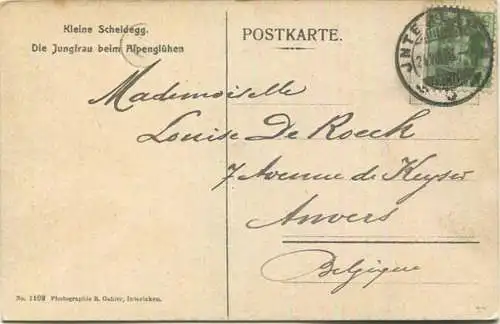 Kleine Scheidegg.
Die Jungfrau beim Alpenglühen
POSTKARTE.
Mademoiselle
Louise De Roeck
7 Avenue de Keyser
Anvers
Belgique
No. 1102 Photographie R. Gabler, Interlaken.